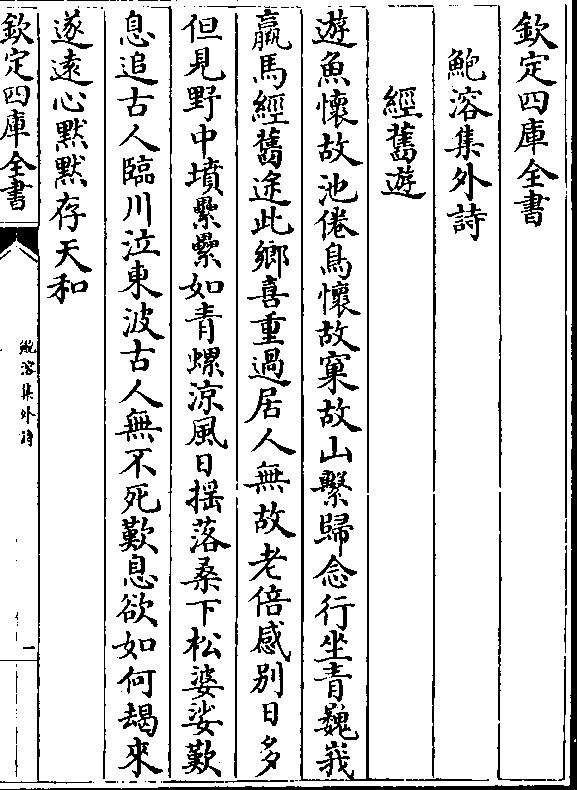 欽定四庫全書
鮑溶集外詩
經舊遊
遊魚懷故池倦鳥懷故窠故山繫歸念行坐青巍峩
羸馬經舊途此鄉喜重過居人無故老倍感別日多
但見野中墳纍纍如青螺涼風日揺落桑下松婆娑歎
息追古人臨川泣東波古人無不死歎息欲如何朅來
遂遠心黙黙存天和
欽定四庫全書
鮑溶集外詩
一